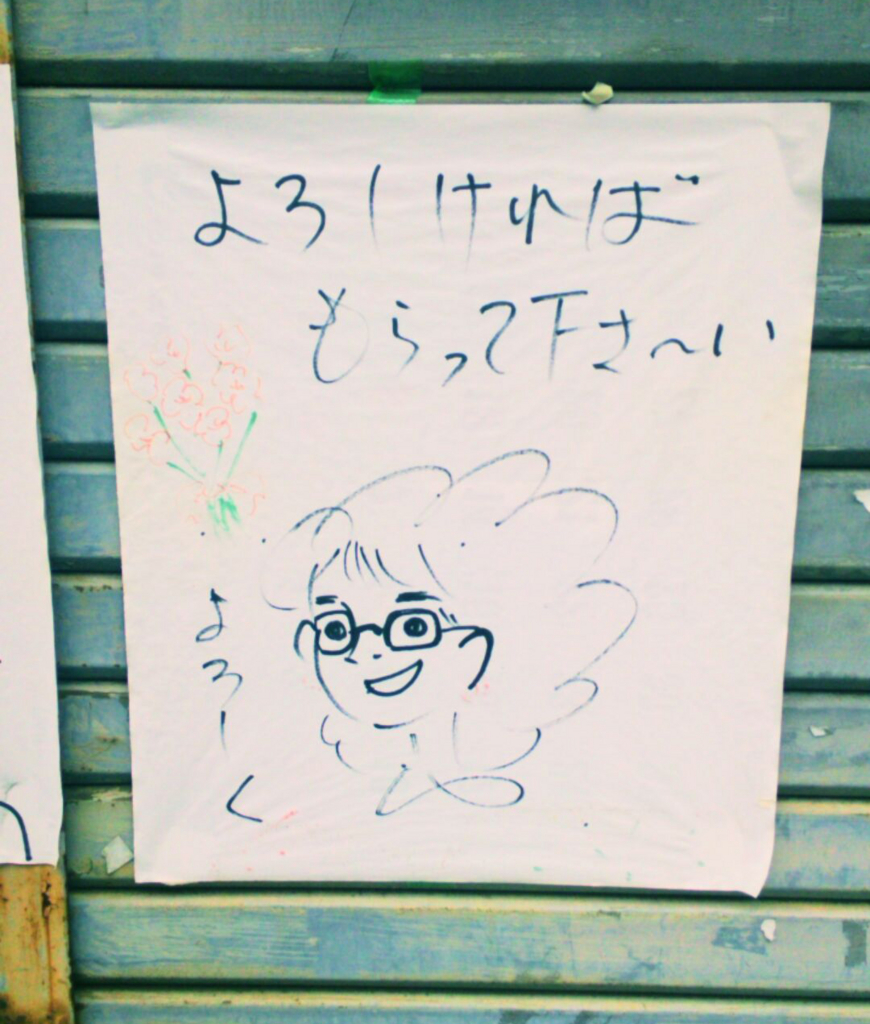 よろしければ
もらって下さ〜い
よろしく